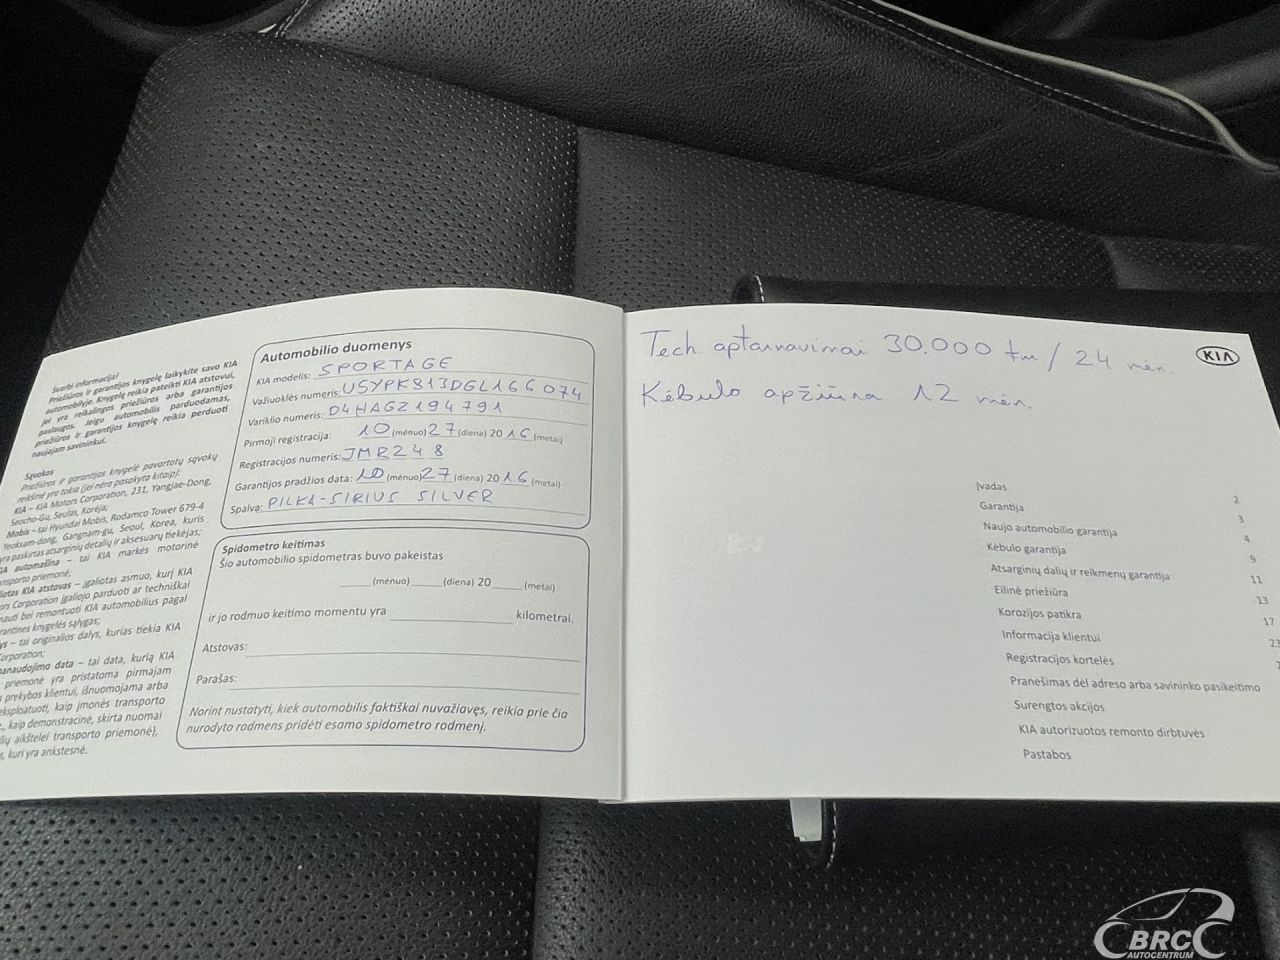 Svarbi informacija!
Priežiūros ir garantijos knygelę laikykite savo KIA
automobilyje. Knygelę reikia pateikti KIA atstovui,
jei yra reikalingos priežiūros arba garantijos
paslaugos. Jeigu automobilis parduodamas,
priežiūros ir garantijos knygelę reikia perduoti
naujajam savininkui.
Sąvokos
Priežiūros ir garantijos knygelė pavartotų sąvokų
reikšmė yra tokia (jei nėra pasakyta kitaip):
KIA – KIA Motors Corporation, 231, Yangjae-Dong,
Seocho-Gu, Seulas, Korėja;
Mobis – tai Hyundai Mobis, Rodamco Tower 679-4
Yeoksam-dong, Gangnam-gu, Seoul, Korea, kuris
yra paskirtas atsarginių detalių ir aksesuarų tiekėjas;
automašina – tai KIA markės motorinė
transporto priemonė;
atstovas – įgaliotas asmuo, kurį KIA
Corporation įgaliojo parduoti ar techniškai
bei remontuoti KIA automobilius pagal
garantines knygelės sąlygas;
– tai originalios dalys, kurias tiekia KIA
Corporation;
panaudojimo data – tai data, kurią KIA
priemonė yra pristatoma pirmajam
prekybos klientui, išnuomojama arba
eksploatuoti, kaip įmonės transporto
kaip demonstracinė, skirta nuomai
aikštelei transporto priemonė),
kuri yra ankstesnė.
Automobilio duomenys
KIA modelis: SPORTAGE
Važiuoklės numeris: U5YPK813DGL166074
Variklio numeris: D4HAGZ194791
Pirmoji registracija: 10 (mėnuo) 27 (diena) 20 16 (metai)
Registracijos numeris: JMR248
Garantijos pradžios data: 10 (mėnuo) 27 (diena) 20 16 (metai)
Spalva: PILKA-SIRIUS SILVER
Spidometro keitimas
Šio automobilio spidometras buvo pakeistas
(mėnuo) (diena) 20 (metai)
ir jo rodmuo keitimo momentu yra kilometrai.
Atstovas:
Parašas:
Norint nustatyti, kiek automobilis faktiškai nuvažiavęs, reikia prie čia
nurodyto rodmens pridėti esamo spidometro rodmenį.
Tech aptarnavimai 30.000 km / 24 mėn.
Kėbulo apžiūra 12 mėn.
KIA
Įvadas 2
Garantija 3
Naujo automobilio garantija 4
Kėbulo garantija 9
Atsarginių dalių ir reikmenų garantija 11
Eilinė priežiūra 13
Korozijos patikra 17
Informacija klientui 23
Registracijos kortelės
Pranešimas dėl adreso arba savininko pasikeitimo
Surengtos akcijos
KIA autorizuotos remonto dirbtuvės
Pastabos
BRC
AUTOCENTRUM